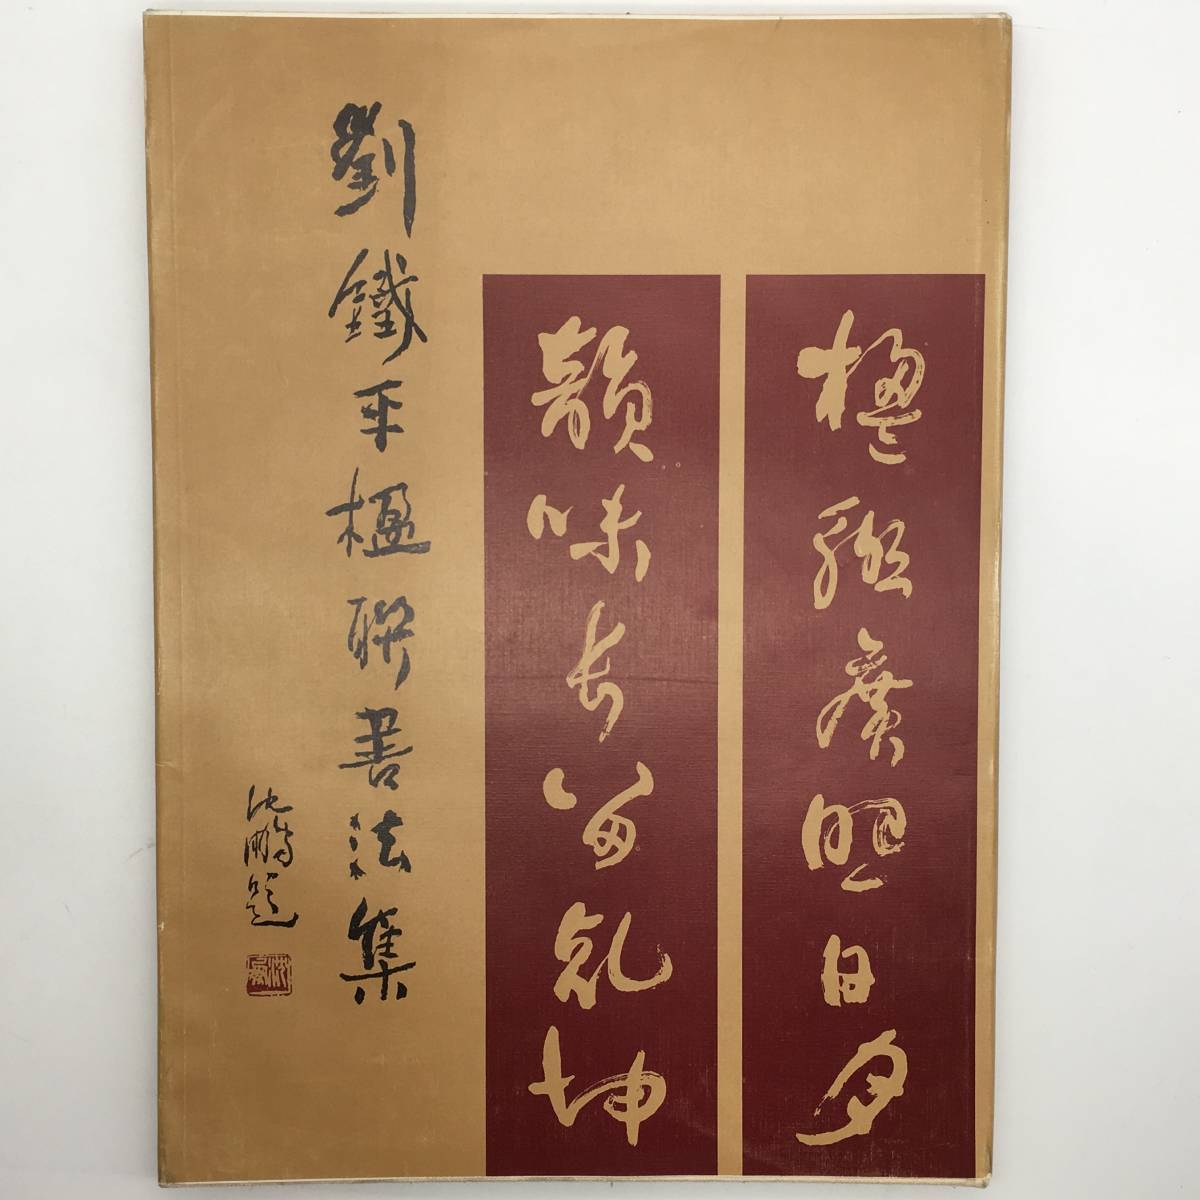 楹聯廣照日月
韻味長留乾坤
劉鐵平楹聯書法集
沈鵬題